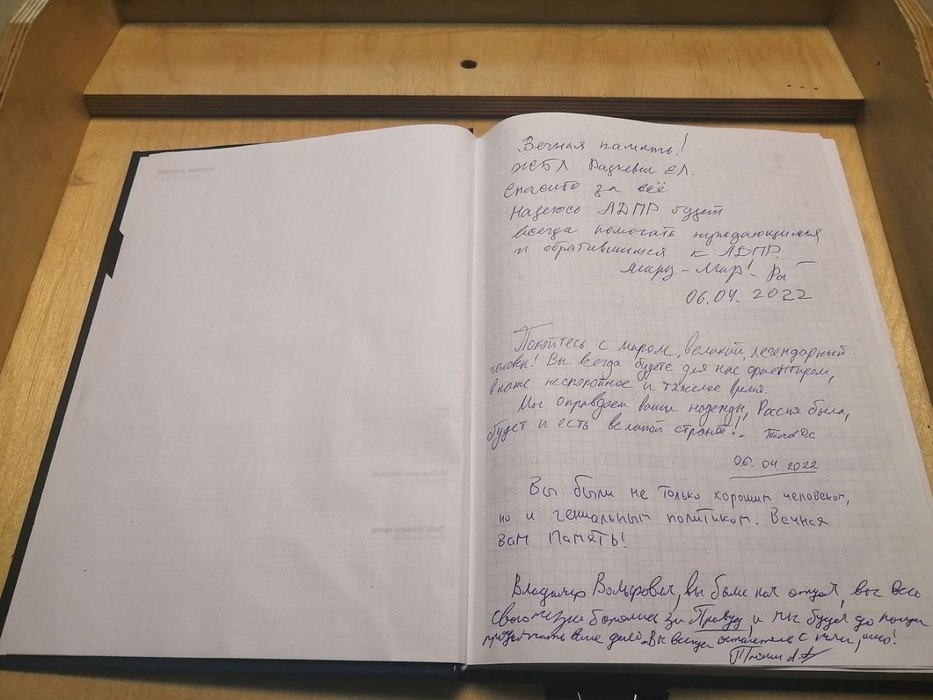 Вечная память!
ЖБЛ Радкевич Е.Л.
Спасибо за всё
Надеюсь ЛДПР будет
всегда помогать нуждающимся
и обратившимся к ЛДПР.
Миру - Мир!
06.04.2022
Покойтесь с миром, великий, легендарный
человек! Вы всегда будете для нас ориентиром,
в наше неспокойное и тяжелое время.
Мы оправдаем ваши надежды, Россия была,
будет и есть великой страной!
06.04.2022
Вы были не только хорошим человеком,
но и гениальным политиком. Вечная
вам Память!
Владимир Вольфович, вы были как отец, вы всю
свою жизнь боролись за Правду, и мы будем до конца
продолжать ваше дело. Вы всегда останетесь с нами,